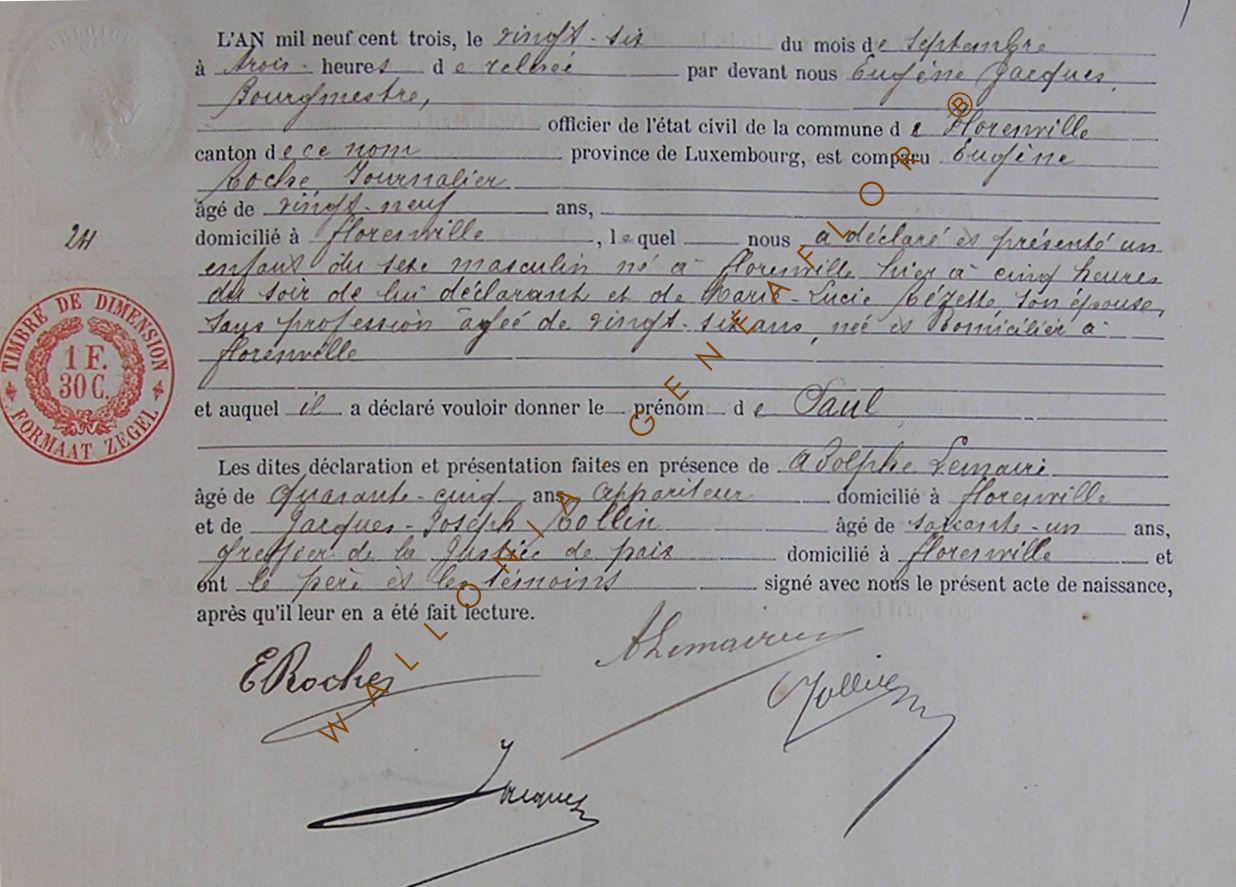 L'AN mil neuf cent trois, le vingt-six du mois de septembre
à trois heures de relevée par devant nous Eugène Jacques,
Bourgmestre,
officier de l'état civil de la commune de Florenville
canton de ce nom province de Luxembourg, est comparu Eugène
Roche, Journalier
âgé de vingt-neuf ans,
domicilié à florenville, lequel nous a déclaré et présenté un
enfant du sexe masculin né à florenville hier à cinq heures
du soir de lui déclarant et de Marie-Lucie Rézette, son épouse,
sans profession âgée de vingt-six ans, née et domicilier à
florenville
et auquel il a déclaré vouloir donner le prénom de Paul
Les dites déclaration et présentation faites en présence de Adolphe Lemaire
âgé de quarante-cinq ans, appariteur domicilié à florenville
et de Jacques-Joseph Rollin âgé de soixante-un ans,
greffier de la Justice de paix domicilié à florenville et
ont le père et les témoins signé avec nous le présent acte de naissance,
après qu'il leur en a été fait lecture.
24
TIMBRE DE DIMENSION
1 F.
30 C.
FORMAAT ZEGEL
ERoche
ALemaire
Jacques
WALLONIA - GENEAFLOR ®